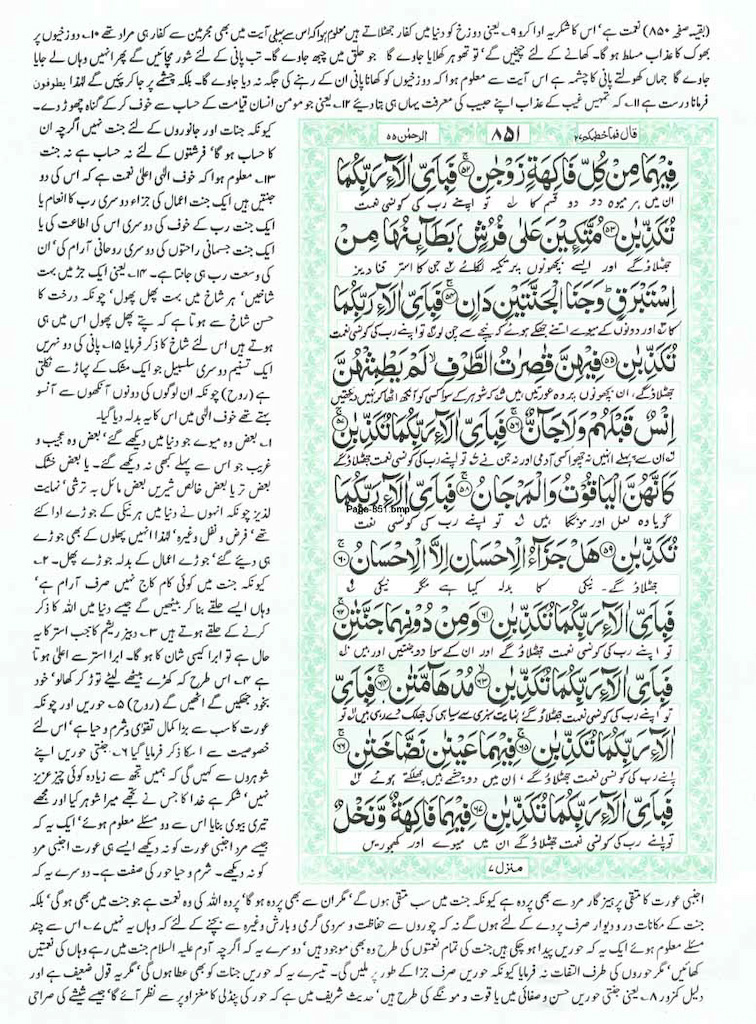 (بقیہ صفحہ ۸۵۰) نعمت ہے' اس کا شکریہ ادا کرو ۹۔ یعنی دوزخ کو دنیا میں کفار جھٹلاتے ہیں معلوم ہوا کہ اس سے پہلی آیت میں بھی مجرمین سے کفار ہی مراد تھے ۱۰۔ دوزخیوں پر
بھوک کا عذاب مسلط ہو گا۔ کھانے کے لئے چیخیں گے' تو تھوہر کھلایا جاوے گا جو حلق میں چبھ جاوے گا۔ تب پانی کے لئے شور مچائیں گے پھر انہیں وہاں لے جایا
جاوے گا جہاں کھولتے پانی کا چشمہ ہے اس آیت سے معلوم ہوا کہ دوزخیوں کو کھانا پانی ان کے رہنے کی جگہ نہ دیا جاوے گا۔ بلکہ چشمے پر جا کر پئیں گے لہذا یطوفون
فرمانا درست ہے ۱۱۔ کہ تمہیں غیب کے عذاب اپنے حبیب کی معرفت یہاں ہی بتا دیئے ۱۲۔ یعنی جو مومن انسان قیامت کے حساب سے خوف کر کے گناہ چھوڑ دے۔
کیونکہ جنات اور جانوروں کے لئے جنت نہیں اگرچہ ان
کا حساب ہو گا' فرشتوں کے لئے نہ حساب ہے نہ جنت
۱۳۔ معلوم ہوا کہ خوف الٰہی اعلیٰ نعمت ہے کہ اس کی دو
جنتیں ہیں ایک جنت اعمال کی جزاء دوسری رب کا انعام یا
ایک جنت رب کے خوف کی دوسری اس کی اطاعت کی یا
ایک جنت جسمانی راحتوں کی دوسری روحانی آرام کی' ان
کی وسعت رب ہی جانتا ہے۔ ۱۴۔ یعنی ایک جڑ میں بہت
شاخیں' ہر شاخ میں بہت پھل پھول' چونکہ درخت کا
حسن شاخ سے ہوتا ہے کہ پتے پھل پھول اس میں ہی
ہوتے ہیں اس لئے شاخ کا ذکر فرمایا ۱۵۔ پانی کی دو نہریں
ایک تسنیم دوسری سلسبیل جو ایک مشک کے پہاڑ سے نکلتی
ہے (روح) چونکہ ان لوگوں کی دونوں آنکھوں سے آنسو
بہتے تھے خوف الٰہی میں اس کا یہ بدلہ دیا گیا۔
۱۔ بعض وہ میوے جو دنیا میں دیکھے گئے' بعض وہ عجیب و
غریب جو اس سے پہلے کبھی نہ دیکھے گئے۔ یا بعض خشک
بعض تر یا بعض خالص شیریں بعض مائل بہ ترشی' نہایت
لذیز چونکہ انہوں نے دنیا میں ہر نیکی کے جوڑے ادا کئے
تھے' فرض و نفل وغیرہ' لہذا انہیں پھلوں کے بھی جوڑے
ہی دیئے گئے' جوڑے اعمال کے بدلہ جوڑے پھل۔ ۲۔
کیونکہ جنت میں کوئی کام کاج نہیں صرف آرام ہے'
وہاں ایسے حلقے بنا کر بیٹھیں گے جیسے دنیا میں اللہ کا ذکر
کرنے کے حلقے ہوتے ہیں ۳۔ دبیز ریشم کا جب استر کا یہ
حال ہے تو ابرا کیسی شان کا ہو گا۔ ابرا استر سے اعلیٰ ہوتا
ہے ۴۔ اس طرح کہ کھڑے بیٹھے لیٹے توڑ کر کھالو' خود
بخود جھکیں گے اٹھیں گے (روح) ۵۔ حوریں اور چونکہ
عورت کا سب سے بڑا کمال تقویٰ و شرم و حیا ہے' اس لئے
خصوصیت سے اسکا ذکر فرمایا گیا ۶۔ جنتی حوریں اپنے
شوہروں سے کہیں گی کہ ہمیں تجھ سے زیادہ کوئی چیز عزیز
نہیں' شکر ہے خدا کا جس نے تجھے میرا شوہر کیا اور مجھے
تیری بیوی بنایا اس سے دو مسئلے معلوم ہوئے' ایک یہ کہ
جیسے مرد اجنبی عورت کو نہ دیکھے ایسے ہی عورت اجنبی مرد
کو نہ دیکھے۔ شرم و حیا حور کی صفت ہے۔ دوسرے یہ کہ
قال فما خطبکم ۲۷
۸۵۱
الرحمٰن ۵۵
فِيهِمَا مِنْ كُلِّ فَاكِهَةٍ زَوْجٰنِ ﴿۵۲﴾ فَبِاَيِّ اٰلَآءِ رَبِّكُمَا
ان میں ہر میوہ دو دو قسم کا ۱ تو اپنے رب کی کونسی نعمت
تُكَذِّبٰنِ ﴿۵۳﴾ مُتَّكِئِينَ عَلٰى فُرُشٍۭ بَطَآئِنُهَا مِنْ
جھٹلاؤ گے اور ایسے بچھونوں پر تکیہ لگائے ۲ جن کا استر قنا دیز
اِسْتَبْرَقٍ ؕ وَجَنَا الْجَنَّتَيْنِ دَانٍ ﴿۵۴﴾ فَبِاَيِّ اٰلَآءِ رَبِّكُمَا
کا ۳ اور دونوں کے میوے اتنے جھکے ہوئے کہ نیچے سے چن لو ۴ تو اپنے رب کی کونسی نعمت
تُكَذِّبٰنِ ﴿۵۵﴾ فِيهِنَّ قٰصِرٰتُ الطَّرْفِ ۙ لَمْ يَطْمِثْهُنَّ
جھٹلاؤ گے، ان بچھونوں پر وہ عورتیں ہیں کہ شوہر کے سوا کسی کو آنکھ اٹھا کر نہیں دیکھتیں
اِنْسٌ قَبْلَهُمْ وَلَا جَآنٌّ ﴿۵۶﴾ فَبِاَيِّ اٰلَآءِ رَبِّكُمَا تُكَذِّبٰنِ ﴿۵۷﴾
ان سے پہلے انہیں نہ چھوا کسی آدمی اور نہ جن نے تو اپنے رب کی کونسی نعمت جھٹلاؤ گے
كَاَنَّهُنَّ الْيَاقُوْتُ وَالْمَرْجَانُ ﴿۵۸﴾ فَبِاَيِّ اٰلَآءِ رَبِّكُمَا
Page-851.bmp
گویا وہ لعل اور مونگا ہیں تو اپنے رب کی کونسی نعمت
تُكَذِّبٰنِ ﴿۵۹﴾ هَلْ جَزَآءُ الْاِحْسَانِ اِلَّا الْاِحْسَانُ ﴿۶۰﴾
جھٹلاؤ گے۔ نیکی کا بدلہ کیا ہے مگر نیکی
فَبِاَيِّ اٰلَآءِ رَبِّكُمَا تُكَذِّبٰنِ ﴿۶۱﴾ وَمِنْ دُوْنِهِمَا جَنَّتٰنِ ﴿۶۲﴾
تو اپنے رب کی کونسی نعمت جھٹلاؤ گے اور ان کے سوا دو جنتیں اور ہیں
فَبِاَيِّ اٰلَآءِ رَبِّكُمَا تُكَذِّبٰنِ ﴿۶۳﴾ مُدْهَآمَّتٰنِ ﴿۶۴﴾ فَبِاَيِّ
تو اپنے رب کی کونسی نعمت جھٹلاؤ گے نہایت سبزی سے سیاہی کی جھلک دے رہی ہیں تو
اٰلَآءِ رَبِّكُمَا تُكَذِّبٰنِ ﴿۶۵﴾ فِيهِمَا عَيْنٰنِ نَضَّاخَتٰنِ ﴿۶۶﴾
اپنے رب کی کونسی نعمت جھٹلاؤ گے، ان میں دو چشمے ہیں چھلکتے ہوئے
فَبِاَيِّ اٰلَآءِ رَبِّكُمَا تُكَذِّبٰنِ ﴿۶۷﴾ فِيهِمَا فَاكِهَةٌ وَّنَخْلٌ
تو اپنے رب کی کونسی نعمت جھٹلاؤ گے ان میں میوے اور کھجوریں
منزل ۷
اجنبی عورت کا متقی پرہیز گار مرد سے بھی پردہ ہے کیونکہ جنت میں سب متقی ہوں گے' مگر ان سے بھی پردہ ہو گا' پردہ اللہ کی وہ نعمت ہے جو جنت میں بھی ہو گی' بلکہ
جنت کے مکانات در و دیوار صرف پردے کے لئے ہوں گے نہ کہ چوروں سے حفاظت و سردی گرمی و بارش وغیرہ سے بچنے کے لئے کہ وہاں یہ نہیں ۷۔ اس سے چند
مسئلے معلوم ہوئے ایک یہ کہ حوریں پیدا ہو چکی ہیں جنت کی تمام نعمتوں کی طرح وہ بھی موجود ہیں' دوسرے یہ کہ اگرچہ آدم علیہ السلام جنت میں رہے وہاں کی نعمتیں
کھائیں' مگر حوروں کی طرف التفات نہ فرمایا کیونکہ حوریں صرف جزا کے طور پر ملیں گی۔ تیسرے یہ کہ حوریں جنات کو بھی عطا ہوں گی' مگر یہ قول ضعیف ہے اور
دلیل کمزور ۸۔ یعنی جنتی حوریں حسن و صفائی میں یاقوت و مونگے کی طرح ہیں' حدیث شریف میں ہے کہ حور کی پنڈلی کا مغز اوپر سے نظر آئے گا' جیسے شیشے کی صراحی